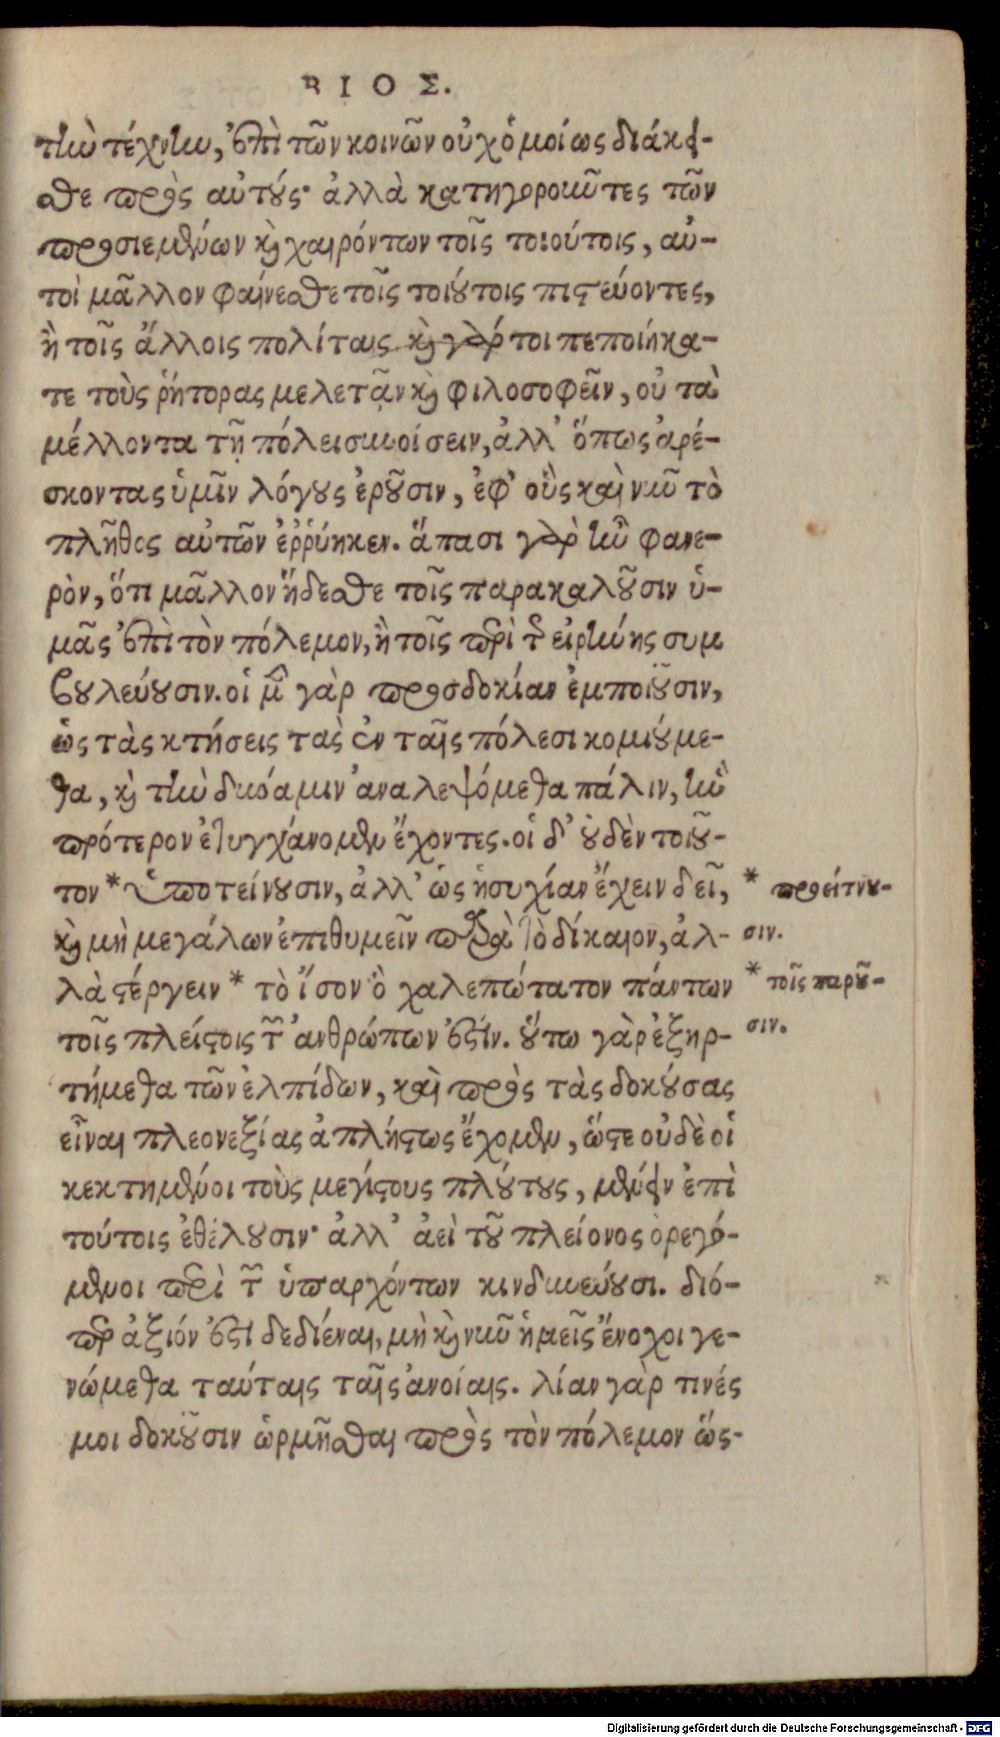 ΒΙΟΣ.
τὴν τέχνην, ἐπὶ τῶν κοινῶν οὐχ ὁμοίως διάκει-
σθε πρὸς αὐτούς· ἀλλὰ κατηγοροῦντες τῶν
προσιεμένων καὶ χαιρόντων τοῖς τοιούτοις, αὐ-
τοὶ μᾶλλον φαίνεσθε τοῖς τοιούτοις πιστεύοντες,
ἢ τοῖς ἄλλοις πολίταις καὶ γάρ τοι πεποιήκα-
τε τοὺς ῥήτορας μελετᾷν καὶ φιλοσοφεῖν, οὐ τὰ
μέλλοντα τῇ πόλει συνοίσειν, ἀλλ' ὅπως ἀρέ-
σκοντας ὑμῖν λόγους ἐροῦσιν, ἐφ' οὓς καὶ νῦν τὸ
πλῆθος αὐτῶν ἐῤῥύηκεν. ἅπασι γὰρ ἦν φανε-
ρὸν, ὅτι μᾶλλον ἥδεσθε τοῖς παρακαλοῦσιν ὑ-
μᾶς ἐπὶ τὸν πόλεμον, ἢ τοῖς περὶ τῆς εἰρήνης συμ
βουλεύουσιν. οἱ μὲν γὰρ προσδοκίαν ἐμποιοῦσιν,
ὡς τὰς κτήσεις τὰς ἐν ταῖς πόλεσι κομιούμε-
θα, καὶ τὴν δύναμιν ἀναλεψόμεθα πάλιν, ἣν
πρότερον ἐτυγχάνομεν ἔχοντες. οἱ δ' οὐδὲν τοιοῦ-
τον * ὑποτείνουσιν, ἀλλ' ὡς ἡσυχίαν ἔχειν δεῖ,
καὶ μὴ μεγάλων ἐπιθυμεῖν παρὰ τὸ δίκαιον, ἀλ-
λὰ στέργειν * τὸ ἴσον ὃ χαλεπώτατον πάντων
τοῖς πλείστοις τῶν ἀνθρώπων ἐστίν. οὕτω γὰρ ἐξηρ-
τήμεθα τῶν ἐλπίδων, καὶ πρὸς τὰς δοκούσας
εἶναι πλεονεξίας ἀπλήστως ἔχομεν, ὥστε οὐδὲ οἱ
κεκτημένοι τοὺς μεγίστους πλούτους, μένειν ἐπὶ
τούτοις ἐθέλουσιν· ἀλλ' ἀεὶ τοῦ πλείονος ὀρεγό-
μενοι περὶ τῶν ὑπαρχόντων κινδυνεύουσι. διό-
περ ἄξιόν ἐστι δεδιέναι, μὴ καὶ νῦν ἡμεῖς ἔνοχοι γε-
νώμεθα ταύταις ταῖς ἀνοίαις. λίαν γὰρ τινές
μοι δοκοῦσιν ὡρμῆσθαι πρὸς τὸν πόλεμον ὥς-
* προτείνου-
σιν.
* τοῖς παροῦ-
σιν.
Digitalisierung gefördert durch die Deutsche Forschungsgemeinschaft - DFG